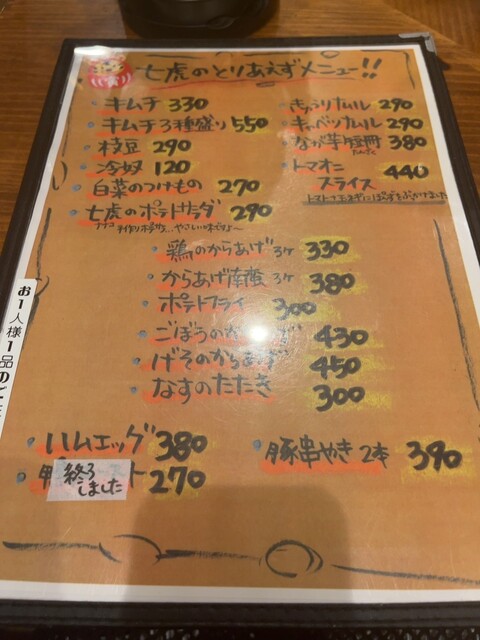 七虎のとりあえずメニュー!!
キムチ 330
キムチ3種盛り 550
枝豆 290
冷奴 120
白菜のつけもの 270
七虎のポテトサラダ 290
きゅうりナムル 290
キャベツナムル 290
なが芋短冊 380
トマオニ
スライス 440
鶏のからあげ 3ヶ 330
からあげ南蛮 3ヶ 380
ポテトフライ 300
ごぼうの 430
げそのからあげ 450
なすのたたき 300
ハムエッグ 380
豚串やき 2本 390
鴨 ト 270
終了
しました
お1人様1品の